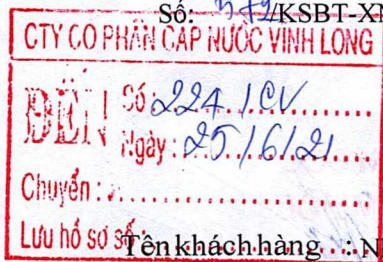 Số: /KSBT-XN
CTY CỔ PHẦN CẤP NƯỚC VĨNH LONG
ĐẾN
Số: 224 / CV
Ngày: 25/6/21
Chuyển:
Lưu hồ sơ số
Tên khách hàng : N